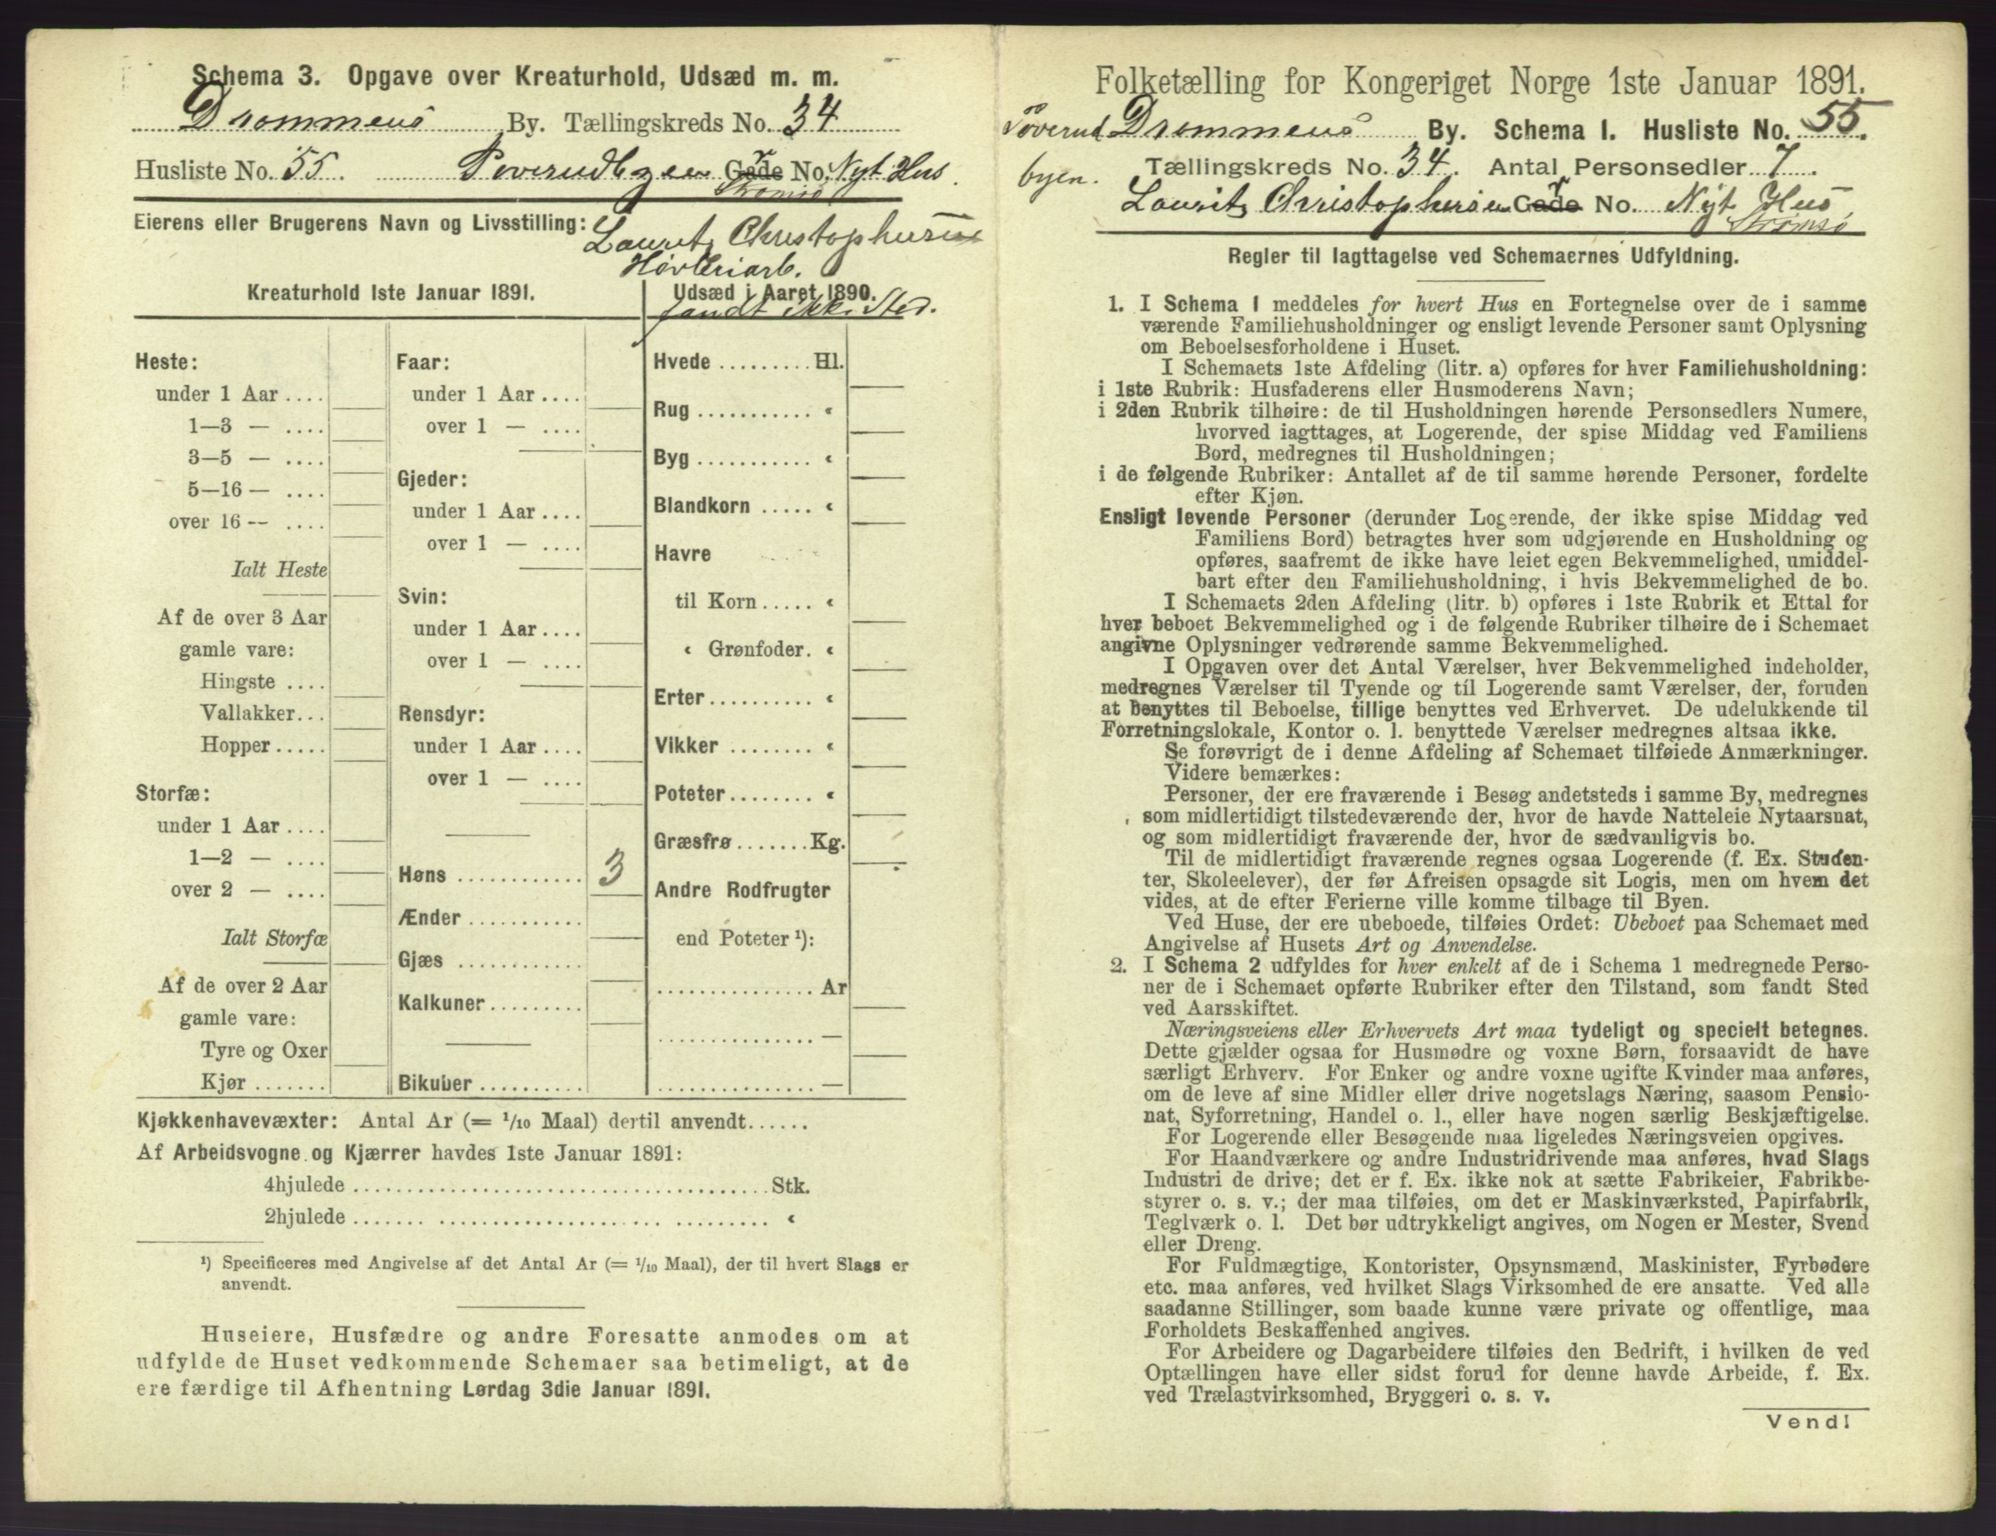 Schema 3. Opgave over Kreaturhold, Udsæd m. m.
Drammens By. Tællingskreds No. 34
Husliste No. 55. Poverudbyen Gade No. Nyt Hus.
Strømsø
Eierens eller Brugerens Navn og Livsstilling: Laurits Christophersen
Høvleriarb.
Kreaturhold 1ste Januar 1891.
Heste:
under 1 Aar ....
1—3 — ....
3—5 — ....
5—16 — ....
over 16 — ....
Ialt Heste
Af de over 3 Aar
gamle vare:
Hingste ....
Vallakker...
Hopper .....
Storfæ:
under 1 Aar ....
1—2 — ....
over 2 — ....
Ialt Storfæ
Af de over 2 Aar
gamle vare:
Tyre og Oxer
Kjør .......
Faar:
under 1 Aar ....
over 1 — ....
Gjeder:
under 1 Aar ....
over 1 — ....
Svin:
under 1 Aar ....
over 1 — ....
Rensdyr:
under 1 Aar ....
over 1 — ....
Høns ............ 3
Ænder ...........
Gjæs ............
Kalkuner.........
Bikuber ..........
Udsæd i Aaret 1890.
fandt ikke Sted.
Hvede ......... Hl.
Rug ........... «
Byg ........... «
Blandkorn ..... «
Havre
til Korn ..... «
« Grønfoder. «
Erter .......... «
Vikker ........ «
Poteter ........ «
Græsfrø ....... Kg.
Andre Rodfrugter
end Poteter ¹):
............... Ar
............... —
............... —
Kjøkkenhavevæxter: Antal Ar (= 1/10 Maal) dertil anvendt......
Af Arbeidsvogne og Kjærrer havdes 1ste Januar 1891:
4hjulede ........................................ Stk.
2hjulede ........................................ «
¹) Specificeres med Angivelse af det Antal Ar (= 1/10 Maal), der til hvert Slags er
anvendt.
Huseiere, Husfædre og andre Foresatte anmodes om at
udfylde de Huset vedkommende Schemaer saa betimeligt, at de
ere færdige til Afhentning Lørdag 3die Januar 1891.
Folketælling for Kongeriget Norge 1ste Januar 1891.
Poverud Drammens By. Schema I. Husliste No. 55.
byen. Tællingskreds No. 34. Antal Personsedler 7.
Laurits Christophersen Gade No. Nyt Hus
Strømsø
Regler til Iagttagelse ved Schemaernes Udfyldning.
1. I Schema 1 meddeles for hvert Hus en Fortegnelse over de i samme
værende Familiehusholdninger og ensligt levende Personer samt Oplysning
om Beboelsesforholdene i Huset.
I Schemaets 1ste Afdeling (litr. a) opføres for hver Familiehusholdning:
i 1ste Rubrik: Husfaderens eller Husmoderens Navn;
i 2den Rubrik tilhøire: de til Husholdningen hørende Personsedlers Numere,
hvorved iagttages, at Logerende, der spise Middag ved Familiens
Bord, medregnes til Husholdningen;
i de følgende Rubriker: Antallet af de til samme hørende Personer, fordelte
efter Kjøn.
Ensligt levende Personer (derunder Logerende, der ikke spise Middag ved
Familiens Bord) betragtes hver som udgjørende en Husholdning og
opføres, saafremt de ikke have leiet egen Bekvemmelighed, umiddel-
bart efter den Familiehusholdning, i hvis Bekvemmelighed de bo.
I Schemaets 2den Afdeling (litr. b) opføres i 1ste Rubrik et Ettal for
hver beboet Bekvemmelighed og i de følgende Rubriker tilhøire de i Schemaet
angivne Oplysninger vedrørende samme Bekvemmelighed.
I Opgaven over det Antal Værelser, hver Bekvemmelighed indeholder,
medregnes Værelser til Tyende og til Logerende samt Værelser, der, foruden
at benyttes til Beboelse, tillige benyttes ved Erhvervet. De udelukkende til
Forretningslokale, Kontor o. l. benyttede Værelser medregnes altsaa ikke.
Se forøvrigt de i denne Afdeling af Schemaet tilføiede Anmærkninger.
Videre bemærkes:
Personer, der ere fraværende i Besøg andetsteds i samme By, medregnes
som midlertidigt tilstedeværende der, hvor de havde Natteleie Nytaarsnat,
og som midlertidigt fraværende der, hvor de sædvanligvis bo.
Til de midlertidigt fraværende regnes ogsaa Logerende (f. Ex. Studen-
ter, Skoleelever), der før Afreisen opsagde sit Logis, men om hvem det
vides, at de efter Ferierne ville komme tilbage til Byen.
Ved Huse, der ere ubeboede, tilføies Ordet: Ubeboet paa Schemaet med
Angivelse af Husets Art og Anvendelse.
2. I Schema 2 udfyldes for hver enkelt af de i Schema 1 medregnede Perso-
ner de i Schemaet opførte Rubriker efter den Tilstand, som fandt Sted
ved Aarsskiftet.
Næringsveiens eller Erhvervets Art maa tydeligt og specielt betegnes.
Dette gjælder ogsaa for Husmødre og voxne Børn, forsaavidt de have
særligt Erhverv. For Enker og andre voxne ugifte Kvinder maa anføres,
om de leve af sine Midler eller drive nogetslags Næring, saasom Pensio-
nat, Syforretning, Handel o. l., eller have nogen særlig Beskjæftigelse.
For Logerende eller Besøgende maa ligeledes Næringsveien opgives.
For Haandværkere og andre Industridrivende maa anføres, hvad Slags
Industri de drive; det er f. Ex. ikke nok at sætte Fabrikeier, Fabrikbe-
styrer o. s. v.; der maa tilføies, om det er Maskinværksted, Papirfabrik,
Teglværk o. l. Det bør udtrykkeligt angives, om Nogen er Mester, Svend
eller Dreng.
For Fuldmægtige, Kontorister, Opsynsmænd, Maskinister, Fyrbødere
etc. maa anføres, ved hvilket Slags Virksomhed de ere ansatte. Ved alle
saadanne Stillinger, som baade kunne være private og offentlige, maa
Forholdets Beskaffenhed angives.
For Arbeidere og Dagarbeidere tilføies den Bedrift, i hvilken de ved
Optællingen have eller sidst forud for denne havde Arbeide, f. Ex.
ved Trælastvirksomhed, Bryggeri o. s. v.
Vend!